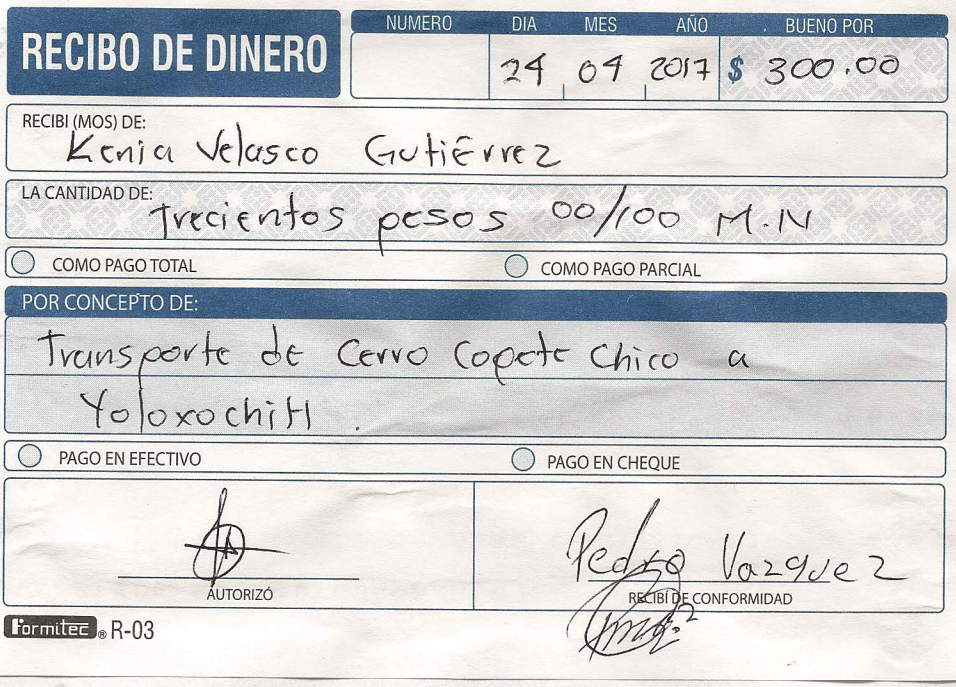 RECIBO DE DINERO
NUMERO DIA MES AÑO BUENO POR
24 04 2017 $ 300.00
RECIBI (MOS) DE:
Kenia Velasco Gutiérrez
LA CANTIDAD DE:
Trecientos pesos 00/100 M.N
COMO PAGO TOTAL COMO PAGO PARCIAL
POR CONCEPTO DE:
Transporte de Cerro Copete Chico a
Yoloxochitl.
PAGO EN EFECTIVO PAGO EN CHEQUE
Pedro Vazquez
AUTORIZÓ RECIBÍ DE CONFORMIDAD
Formitec ® R-03